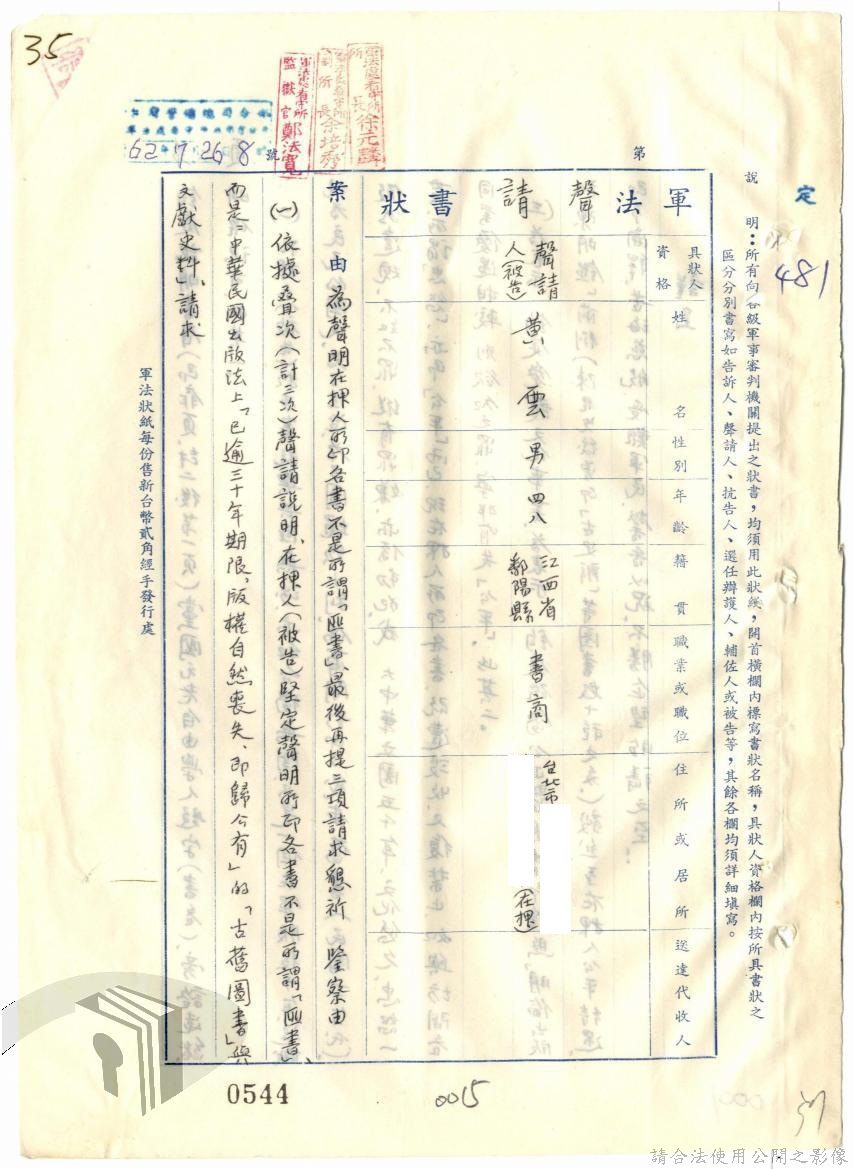 35
62年7月26 8
號
軍法處看守所
所長徐元麟
副所長余培
軍法處看守所
監獄官鄭法寬
第
定
481
說明：所有向各級軍事審判機關提出之狀書，均須用此狀紙，開首橫欄內標寫書狀名稱，具狀人資格欄內按所具書狀之
區分分別書寫如告訴人、聲請人、抗告人、選任辯護人、輔佐人或被告等，其餘各欄均須詳細填寫。
軍法聲請書狀
具狀人資格
姓名
性別
年齡
籍貫
職業或職位
住所或居所
送達代收人
聲請人(被告)
黃雲
男
四八
江西省鄱陽縣
書商
台北市
(在押)
案由 為聲明在押人所印各書不是所謂「匪書」、最後再提三項請求懇祈 鑒察由
(一)依據叠次(計三次)聲請說明、在押人(被告)堅定聲明所印各書不是所謂「匪書」、
而是：中華民國出版法上「已逾三十年期限、版權自然喪失、即歸公有」的「古舊圖書」與
文獻史料」、請求
軍法狀紙每份售新台幣貳角經手發行處
0544
0015
請合法使用公開之影像